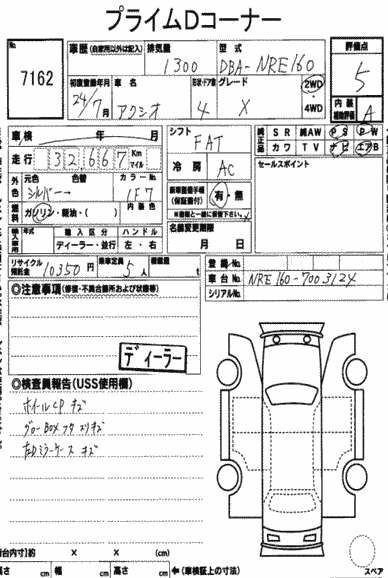 プライムDコーナー
No. 車歴 (自家用以外は記入) 排気量 型式 評価点
7162 1300 DBA-NRE160 5
初度登録年月 車名 形状・ドア数 グレード 2WD 内装
24/7月 アクシオ 4 X 4WD 補助評価 A
車検 年 月 シフト FAT 純正品 SR 純AW PS PW
カワ TV ナビ エアB
走行 32,667 Km マイル 冷房 AC セールスポイント
外色 元色 色替 カラーNo.
シルバー→ 1F7 新車整備手帳 (保証書付) 有・無
燃料 ガソリン・軽油・( ) 内装色 ※書類と一緒に保管下さい。
輸入車用 年式 輸入区分 ハンドル 名義変更期限
ディーラー・並行 左・右 月 日
リサイクル預託金 10350円 乗車定員 5人 積載量 t 登録No.
車台No. NRE160-7003124
シリアルNo.
◎注意事項 (修復・不具合箇所および状態等)
ディーラー
◎検査員報告 (USS使用欄)
ホイールCPキズ
グローBOXフタスリキズ
右Dミラーケースキズ
スペア
荷台内寸) 約 × × (cm)
長さ cm 幅 cm 高さ cm ←(車検証上の寸法)